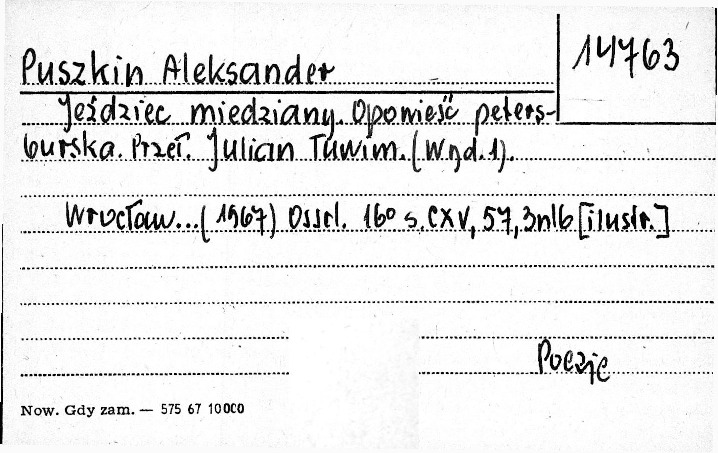 14763
Puszkin Aleksander
Jeździec miedziany. Opowieść peters-
burska. Przeł. Julian Tuwim. (Wyd. 1).
Wrocław...(1967) Ossol. 16° s. CXV, 57, 3nlb [ilustr.]
Poezje
Now. Gdy zam. — 575 67 10000